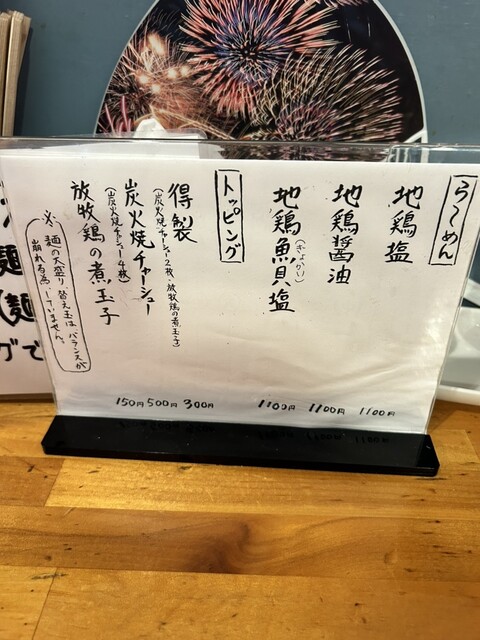 らーめん
地鶏塩 1100円
地鶏醤油 1100円
地鶏魚貝塩 1100円
(ぎょかい)
トッピング
得製 300円
(炭火焼チャーシュー2枚、放牧鶏の煮玉子)
炭火焼チャーシュー 500円
(炭火焼チャーシュー4枚)
放牧鶏の煮玉子 150円
※麺の大盛り、替え玉はバランスが
崩れる為、していません。